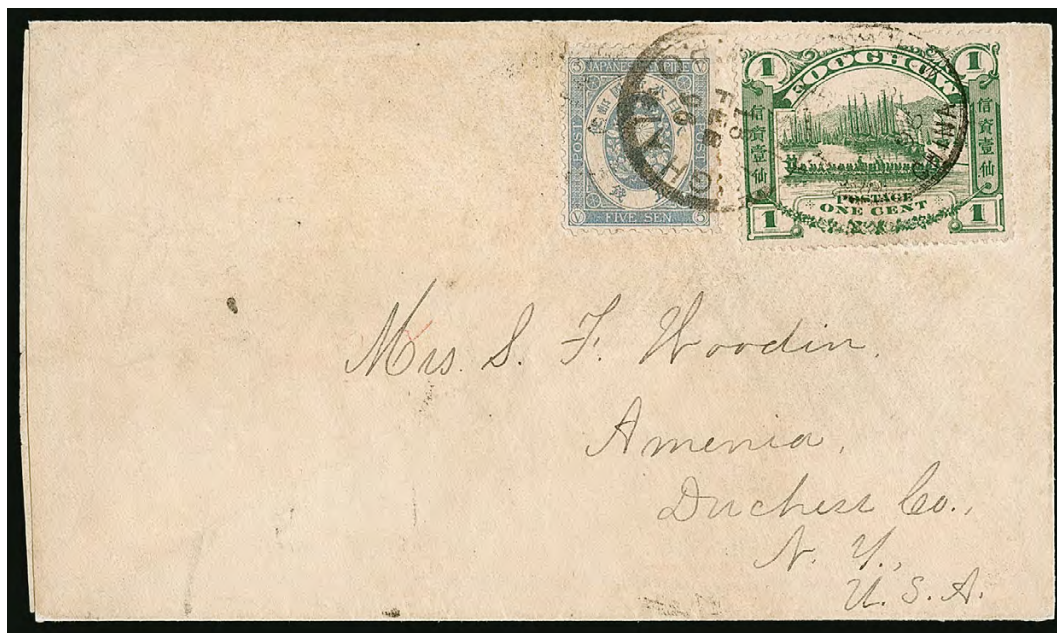 JAPANESE EMPIRE
POST
FIVE SEN
5
V
V
5
FEB
CHINA
FOOCHOW
1
1
信資壹仙
信資壹仙
POSTAGE
ONE CENT
1
1
Mrs. S. F. Woodin.
Amenia,
Duchess Co.,
N. Y.,
U. S. A.